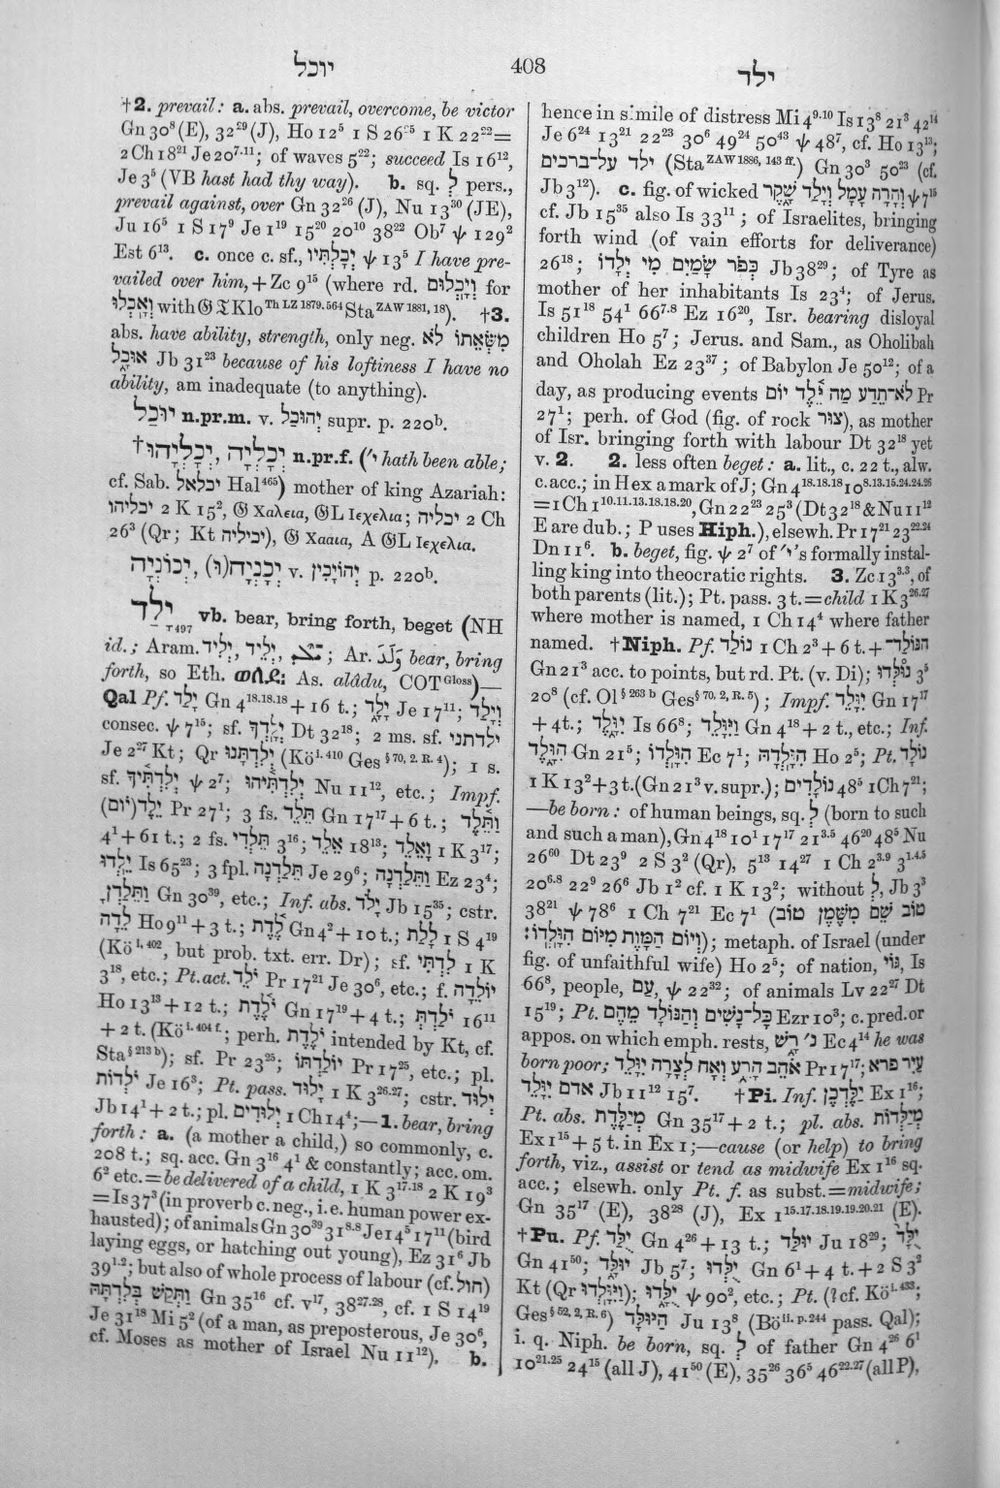 יוכל
408
ילד
†2. prevail: a. abs. prevail, overcome, be victor
Gn 30⁸ (E), 32²⁹ (J), Ho 12⁵ 1 S 26²⁵ 1 K 22²²=
2 Ch 18²¹ Je 20⁷·¹¹; of waves 5²²; succeed Is 16¹²,
Je 3⁵ (VB hast had thy way). b. sq. לְ pers.,
prevail against, over Gn 32²⁶ (J), Nu 13³⁰ (JE),
Ju 16⁵ 1 S 17⁹ Je 1¹⁹ 15²⁰ 20¹⁰ 38²² Ob⁷ ψ 129²
Est 6¹³. c. once c. sf., יְכָלְתִּיו ψ 13⁵ I have pre-
vailed over him, + Zc 9¹⁵ (where rd. וְיָכְלוּם for
וְאָכְלוּ with 𝔊 𝔗 Klo ᵀʰ ᴸᶻ ¹⁸⁷⁹·⁵⁶⁴ Sta ᶻᴬᵂ ¹⁸⁸¹, ¹⁸). †3.
abs. have ability, strength, only neg. מִשְּׂאֵתוֹ לֹא
אוּכָל Jb 31²³ because of his loftiness I have no
ability, am inadequate (to anything).
יוּכַל n.pr.m. v. יְהוּכַל supr. p. 220b.
†יְכָלְיָה, יְכָלְיָהוּ n.pr.f. (׳י hath been able;
cf. Sab. יכלאל Hal⁴⁶⁵) mother of king Azariah:
יכליהו 2 K 15², 𝔊 Χαλεια, 𝔊L Ιεχελια; יכליה 2 Ch
26³ (Qr; Kt יכיליה), 𝔊 Χααια, A 𝔊L Ιεχελια.
יְכָנְיָה(וּ), יְכוֹנְיָה v. יְהוֹיָכִין p. 220b.
יָלַד T497 vb. bear, bring forth, beget (NH
id.; Aram. יְלַד, יְלֵיד, יְלִיד; Ar. وَلَدَ bear, bring
forth, so Eth. ወለደ: As. alâdu, COT Gloss)—
Qal Pf. יָלַד Gn 4¹⁸·¹⁸·¹⁸ + 16 t.; יָלָד Je 17¹¹; וְיָלַד
consec. ψ 7¹⁵; sf. יְלָדְךָ Dt 32¹⁸; 2 ms. sf. ילדתני
Je 2²⁷ Kt; Qr יְלִדְתָּנוּ (Kö ⁱ·⁴¹⁰ Ges §⁷⁰, ²· ᴿ· ⁴); 1 s.
sf. יְלִדְתִּיךָ ψ 2⁷; יְלִדְתִּיהוּ Nu 11¹², etc.; Impf.
יֵלֶד(יוֹם) Pr 27¹; 3 fs. תֵּלֵד Gn 17¹⁷ + 6 t.; וַתֵּלֶד
4¹ + 61 t.; 2 fs. תֵּלְדִי 3¹⁶; אֵלֵד 18¹³; וָאֵלֵד 1 K 3¹⁷;
יֵלְדוּ Is 65²³; 3 fpl. תֵּלַדְנָה Je 29⁶; וַתֵּלַדְנָה Ez 23⁴;
וַתֵּלַדְןָ Gn 30³⁹, etc.; Inf. abs. יָלֹד Jb 15³⁵; cstr.
לֵדָה Ho 9¹¹ + 3 t.; לֶדֶת Gn 4² + 10 t.; לָלַת 1 S 4¹⁹
(Kö ⁱ·⁴⁰², but prob. txt. err. Dr); sf. לִדְתִּי 1 K
3¹⁸, etc.; Pt. act. יֹלֵד Pr 17²¹ Je 30⁶, etc.; f. יוֹלֵדָה
Ho 13¹³ + 12 t.; יֹלֶדֶת Gn 17¹⁹ + 4 t.; יֹלַדְתְּ 16¹¹
+ 2 t. (Kö ⁱ·⁴⁰⁴ ᶠ·; perh. יֹלֶדֶת intended by Kt, cf.
Sta §²¹³ᵇ); sf. יוֹלַדְתּוֹ Pr 23²⁵; Pr 17²⁵, etc.; pl.
יֹלְדוֹת Je 16³; Pt. pass. יָלוּד 1 K 3²⁶·²⁷; cstr. יְלוּד
Jb 14¹ + 2 t.; pl. יְלוּדִים 1 Ch 14⁴;—1. bear, bring
forth: a. (a mother a child,) so commonly, c.
208 t.; sq. acc. Gn 3¹⁶ 4¹ & constantly; acc. om.
6² etc. = be delivered of a child, 1 K 3¹⁷·¹⁸ 2 K 19³
=Is 37³ (in proverb c. neg., i.e. human power ex-
hausted); of animals Gn 30³⁹ 31⁸·⁸ Je 14⁵ 17¹¹ (bird
laying eggs, or hatching out young), Ez 31⁶ Jb
39¹·²; but also of whole process of labour (cf. חול)
וַתְּקַשׁ בְּלִדְתָּהּ Gn 35¹⁶ cf. v¹⁷, 38²⁷·²⁸, cf. 1 S 14¹⁹
Je 31¹⁸ Mi 5² (of a man, as preposterous, Je 30⁶,
cf. Moses as mother of Israel Nu 11¹²). b.
hence in simile of distress Mi 4⁹·¹⁰ Is 13⁸ 21³ 42¹⁴
Je 6²⁴ 13²¹ 22²³ 30⁶ 49²⁴ 50⁴³ ψ 48⁷, cf. Ho 13¹³;
ילד על־ברכים (Sta ᶻᴬᵂ ¹⁸⁸⁶, ¹⁴³ ᶠᶠ·) Gn 30³ 50²³ (cf.
Jb 3¹²). c. fig. of wicked וְהָרָה עָמָל וְיָלַד שָׁקֶר ψ 7¹⁵
cf. Jb 15³⁵ also Is 33¹¹; of Israelites, bringing
forth wind (of vain efforts for deliverance)
26¹⁸; כְּפֹר שָׁמַיִם מִי יְלָדוֹ Jb 38²⁹; of Tyre as
mother of her inhabitants Is 23⁴; of Jerus.
Is 51¹⁸ 54¹ 66⁷·⁸ Ez 16²⁰, Isr. bearing disloyal
children Ho 5⁷; Jerus. and Sam., as Oholibah
and Oholah Ez 23³⁷; of Babylon Je 50¹²; of a
day, as producing events לֹא־תֵדַע מַה יֵּלֶד יוֹם Pr
27¹; perh. of God (fig. of rock צוּר), as mother
of Isr. bringing forth with labour Dt 32¹⁸ yet
v. 2. 2. less often beget: a. lit., c. 22 t., alw.
c. acc.; in Hex a mark of J; Gn 4¹⁸·¹⁸·¹⁸ 10⁸·¹³·¹⁵·²⁴·²⁴·²⁶
=1 Ch 1¹⁰·¹¹·¹³·¹⁸·¹⁸·²⁰, Gn 22²³ 25³ (Dt 32¹⁸ & Nu 11¹²
E are dub.; P uses Hiph.), elsewh. Pr 17²¹ 23²²·²⁴
Dn 11⁶. b. beget, fig. ψ 2⁷ of ׳י's formally instal-
ling king into theocratic rights. 3. Zc 13³·³, of
both parents (lit.); Pt. pass. 3 t. = child 1 K 3²⁶·²⁷
where mother is named, 1 Ch 14⁴ where father
named. †Niph. Pf. נוֹלַד 1 Ch 2³ + 6 t. + הַנּוֹלַד־
Gn 21³ acc. to points, but rd. Pt. (v. Di); נוֹלְדוּ 3⁵
20⁸ (cf. Ol §²⁶³ᵇ Ges §⁷⁰, ², ᴿ· ⁵); Impf. יִוָּלֵד Gn 17¹⁷
+ 4 t.; יִוָּלֶד Is 66⁸; וַיִּוָּלֵד Gn 4¹⁸ + 2 t., etc.; Inf.
הִוָּלֶד Gn 21⁵; הִוָּלְדוֹ Ec 7¹; הִוָּלְדָהּ Ho 2⁵; Pt. נוֹלָד
1 K 13² + 3 t. (Gn 21³ v. supr.); נוֹלָדִים 48⁵ 1 Ch 7²¹;
—be born: of human beings, sq. לְ (born to such
and such a man), Gn 4¹⁸ 10¹ 17¹⁷ 21³·⁵ 46²⁰ 48⁵ Nu
26⁶⁰ Dt 23⁹ 2 S 3² (Qr), 5¹³ 14²⁷ 1 Ch 2³·⁹ 3¹·⁴·⁵
20⁶·⁸ 22⁹ 26⁶ Jb 1² cf. 1 K 13²; without לְ, Jb 3³
38²¹ ψ 78⁶ 1 Ch 7²¹ Ec 7¹ (טוֹב שֵׁם מִשֶּׁמֶן טוֹב
וְיוֹם הַמָּוֶת מִיּוֹם הִוָּלְדוֹ׃); metaph. of Israel (under
fig. of unfaithful wife) Ho 2⁵; of nation, גּוֹי, Is
66⁸, people, עַם, ψ 22³²; of animals Lv 22²⁷ Dt
15¹⁹; Pt. כָּל־נָשִׁים וְהַנּוֹלָד מֵהֶם Ezr 10³; c. pred. or
appos. on which emph. rests, נ׳ רָשׁ Ec 4¹⁴ he was
born poor; אֹהֵב הָרֵעַ וְאָח לְצָרָה יִוָּלֵד Pr 17¹⁷; עַיִר פרא
אדם יִוָּלֵד Jb 11¹² 15⁷. †Pi. Inf. יַלֶּדְכֶן Ex 1¹⁶;
Pt. abs. מְיַלֶּדֶת Gn 35¹⁷ + 2 t.; pl. abs. מְיַלְּדֹת
Ex 1¹⁵ + 5 t. in Ex 1;—cause (or help) to bring
forth, viz., assist or tend as midwife Ex 1¹⁶ sq.
acc.; elsewh. only Pt. f. as subst. = midwife;
Gn 35¹⁷ (E), 38²⁸ (J), Ex 1¹⁵·¹⁷·¹⁸·¹⁹·¹⁹·²⁰·²¹ (E).
†Pu. Pf. יֻלַּד Gn 4²⁶ + 13 t.; יוּלַּד Ju 18²⁹; יֻלָּד
Gn 41⁵⁰; יוּלָּד Jb 5⁷; יֻלְּדוּ Gn 6¹ + 4 t. + 2 S 3²
Kt (Qr וַיִּוָּלְדוּ); יֻלָּדוּ ψ 90², etc.; Pt. (? cf. Kö ⁱ·⁴³³;
Ges §⁵², ², ᴿ· ⁶) הַיּוּלָּד Ju 13⁸ (Bö ⁱⁱ· ᵖ·²⁴⁴ pass. Qal);
i. q. Niph. be born, sq. לְ of father Gn 4²⁶ 6¹
10²¹·²⁵ 24¹⁵ (all J), 41⁵⁰ (E), 35²⁶ 36⁵ 46²²·²⁷ (all P),